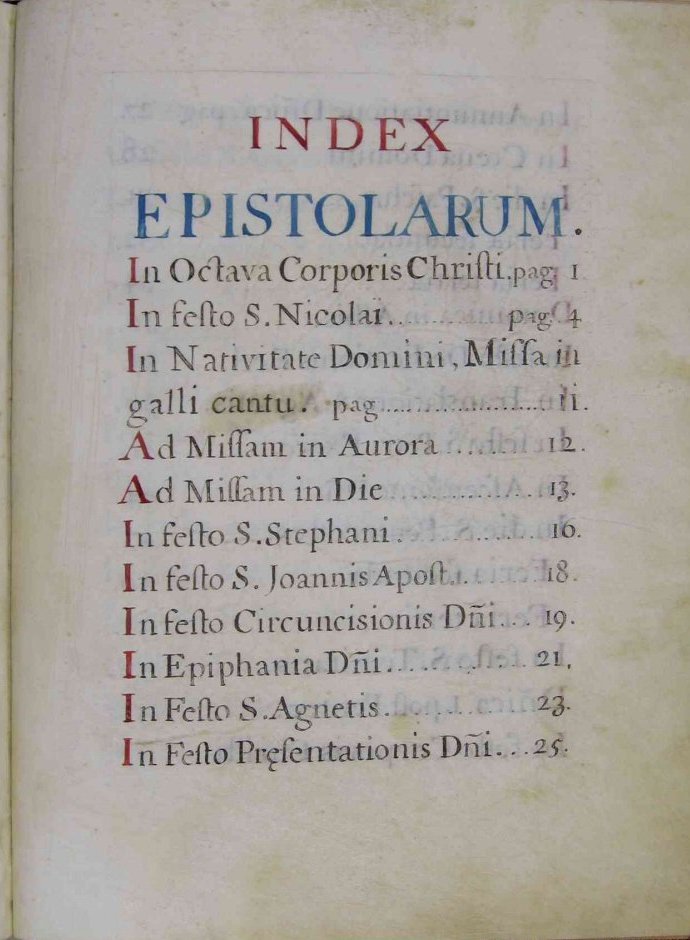 INDEX
EPISTOLARUM.
In Octava Corporis Christi, pag 1
In festo S. Nicolai.......... pag 4
In Nativitate Domini, Missa in
galli cantu. pag.................... 11.
Ad Missam in Aurora ....... 12.
Ad Missam in Die ........... 13.
In festo S. Stephani.......... 16.
In festo S. Joannis Apost.... 18.
In festo Circuncisionis Dñi... 19.
In Epiphania Dñi.............. 21.
In Festo S. Agnetis........... 23.
In Festo Pręsentationis Dñi... 25.